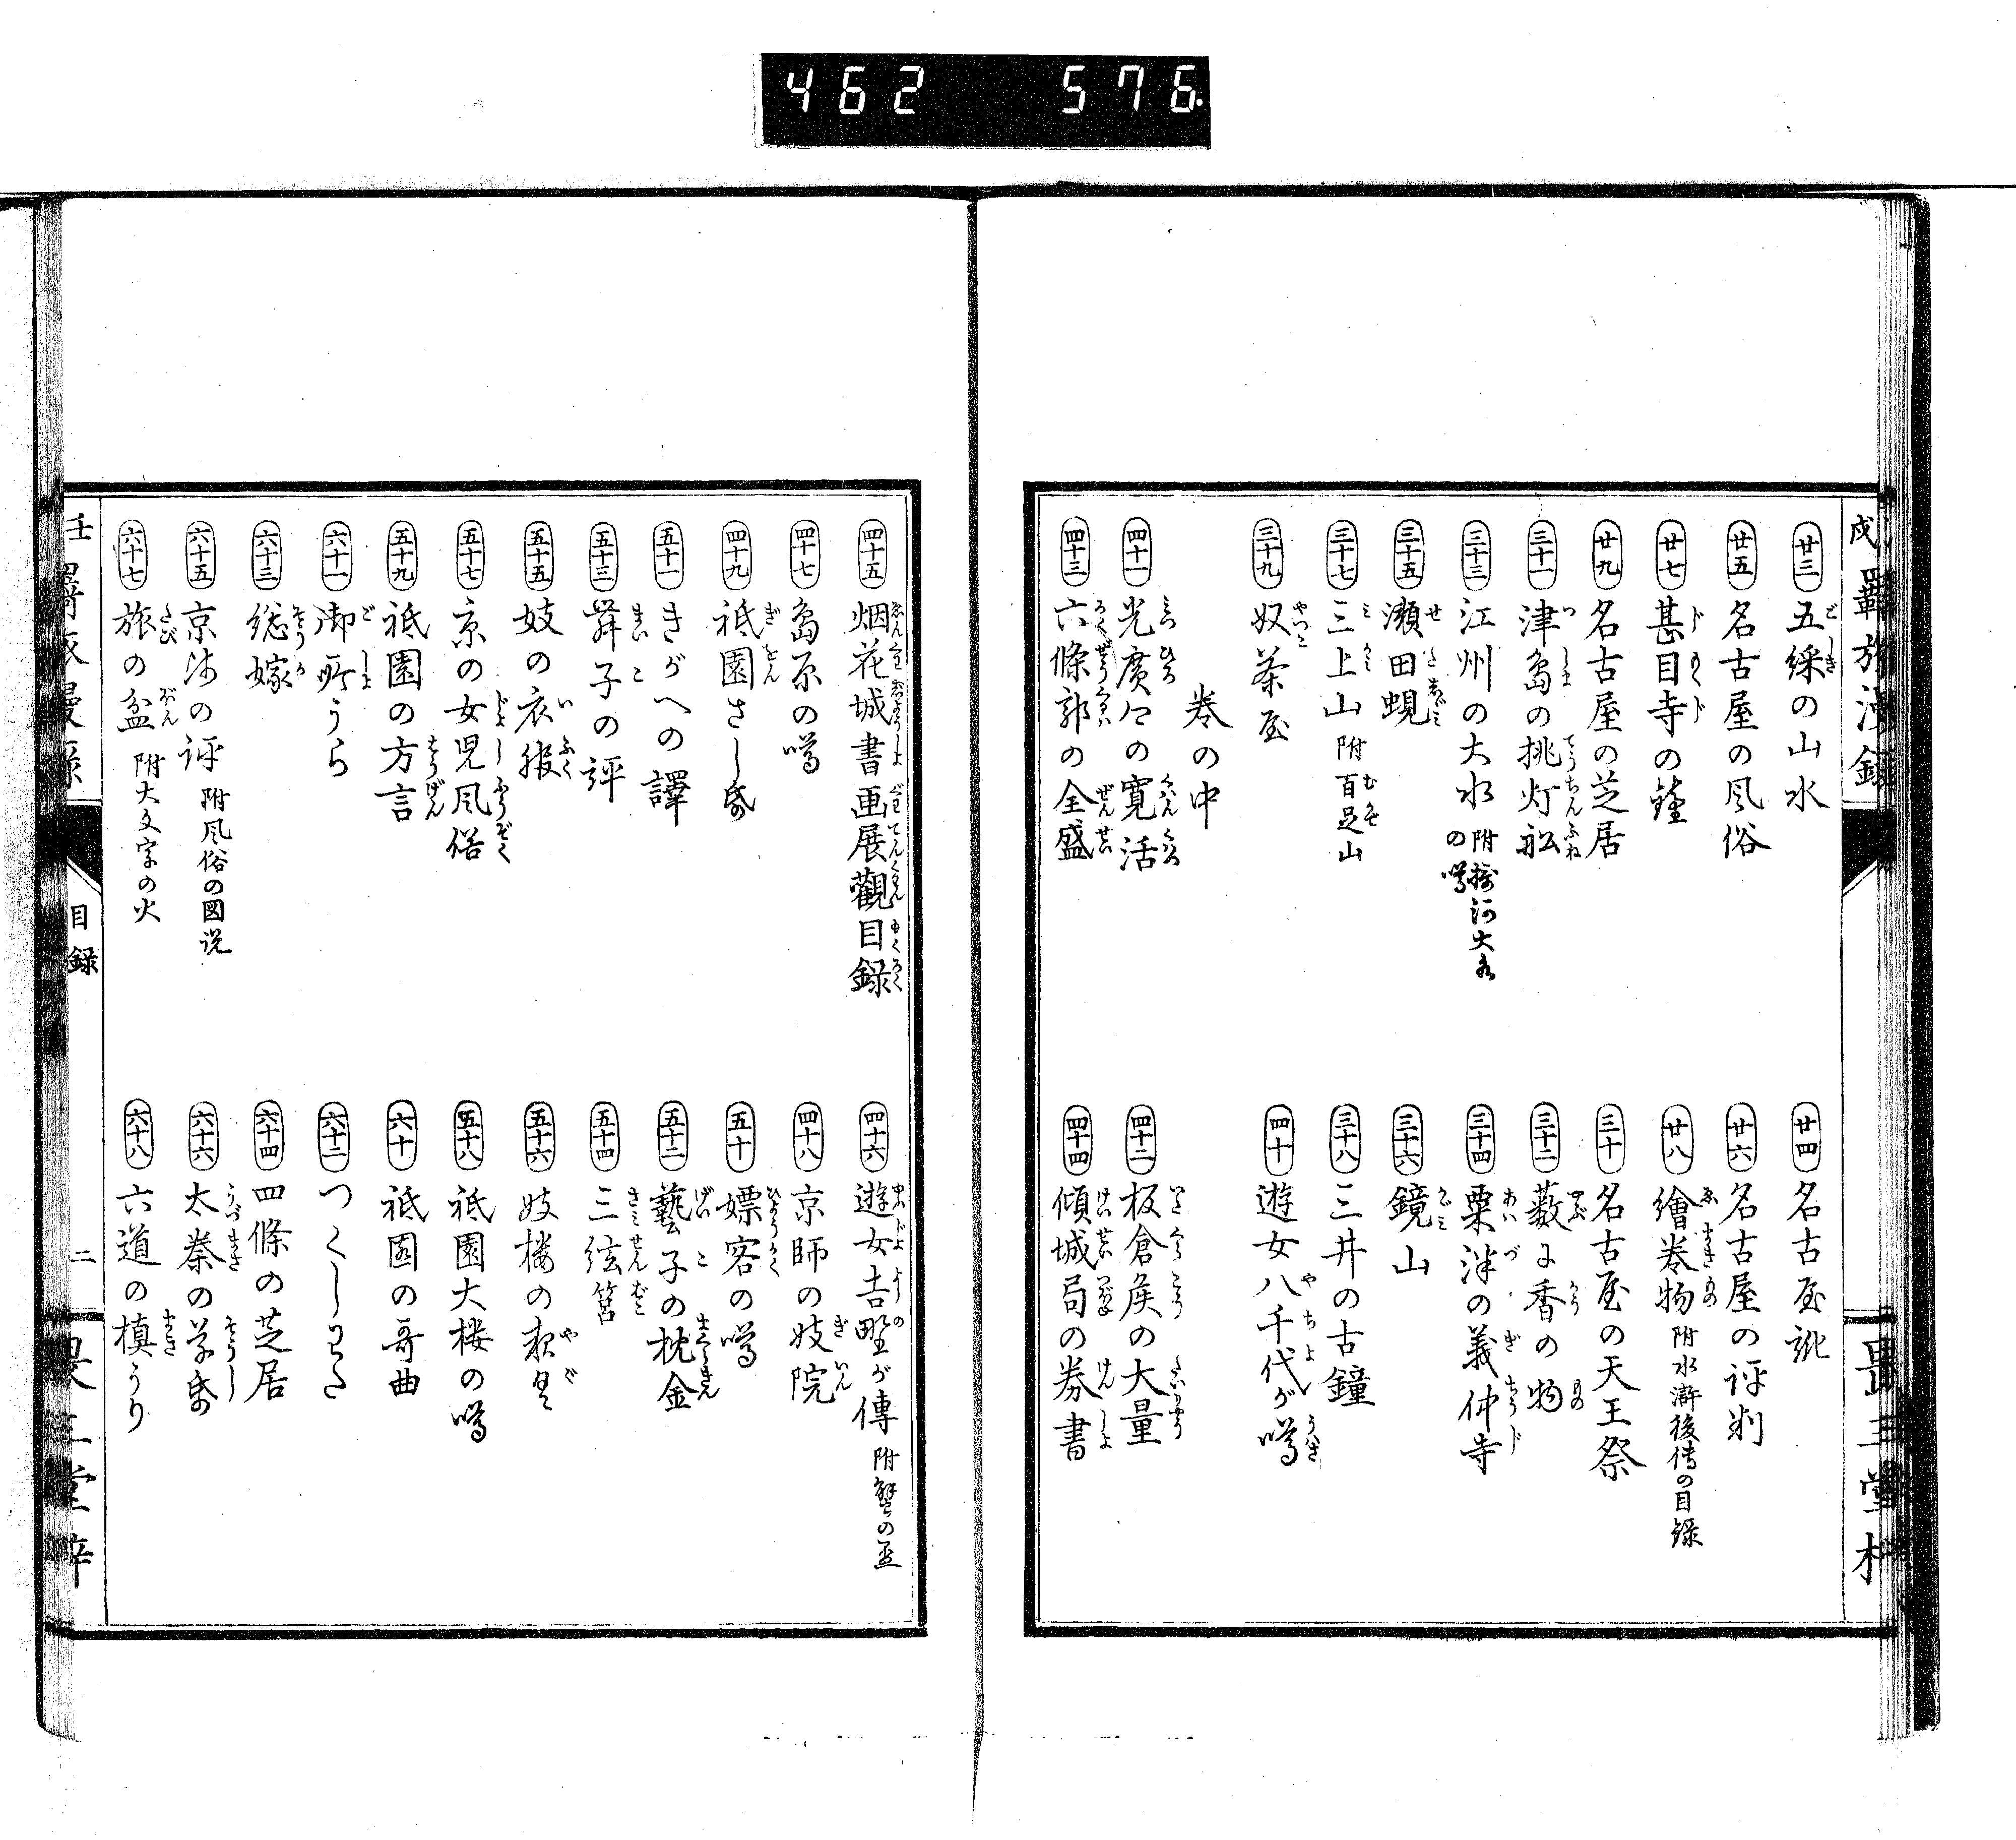 462 576
戌羇旅漫録
畏三堂梓
廿三 五綵の山水
廿四 名古屋訛
廿五 名古屋の風俗
廿六 名古屋の評判
廿七 甚目寺の鐘
廿八 繪巻物 附水滸後傳の目録
廿九 名古屋の芝居
三十 名古屋の天王祭
三十一 津島の挑灯舩
三十二 藪に香の物
三十三 江州の大水 附攝河大水の噂
三十四 粟津の義仲寺
三十五 瀬田蜆
三十六 鏡山
三十七 三上山 附百足山
三十八 三井の古鐘
三十九 奴茶屋
四十 遊女八千代が噂
巻の中
四十一 光廣公の寛活
四十二 板倉侯の大量
四十三 六條郭の全盛
四十四 傾城局の券書
四十五 烟花城書画展觀目録
四十六 遊女吉野が傳 附蟹の盃
四十七 島原の噂
四十八 京師の妓院
四十九 祇園さし帋
五十 嫖客の噂
五十一 きがへの譯
五十二 藝子の枕金
五十三 舞子の評
五十四 三絃筥
五十五 妓の衣服
五十六 妓樓の夜具
五十七 京の女児風俗
五十八 祇園大楼の噂
五十九 祇園の方言
六十 祇園の哥曲
六十一 御所うら
六十二 つくしわた
六十三 総嫁
六十四 四條の芝居
六十五 京師の評 附風俗の図説
六十六 太秦の草帋
六十七 旅の盆 附大文字の火
六十八 六道の槙うり
壬
目録
二
畏三堂梓